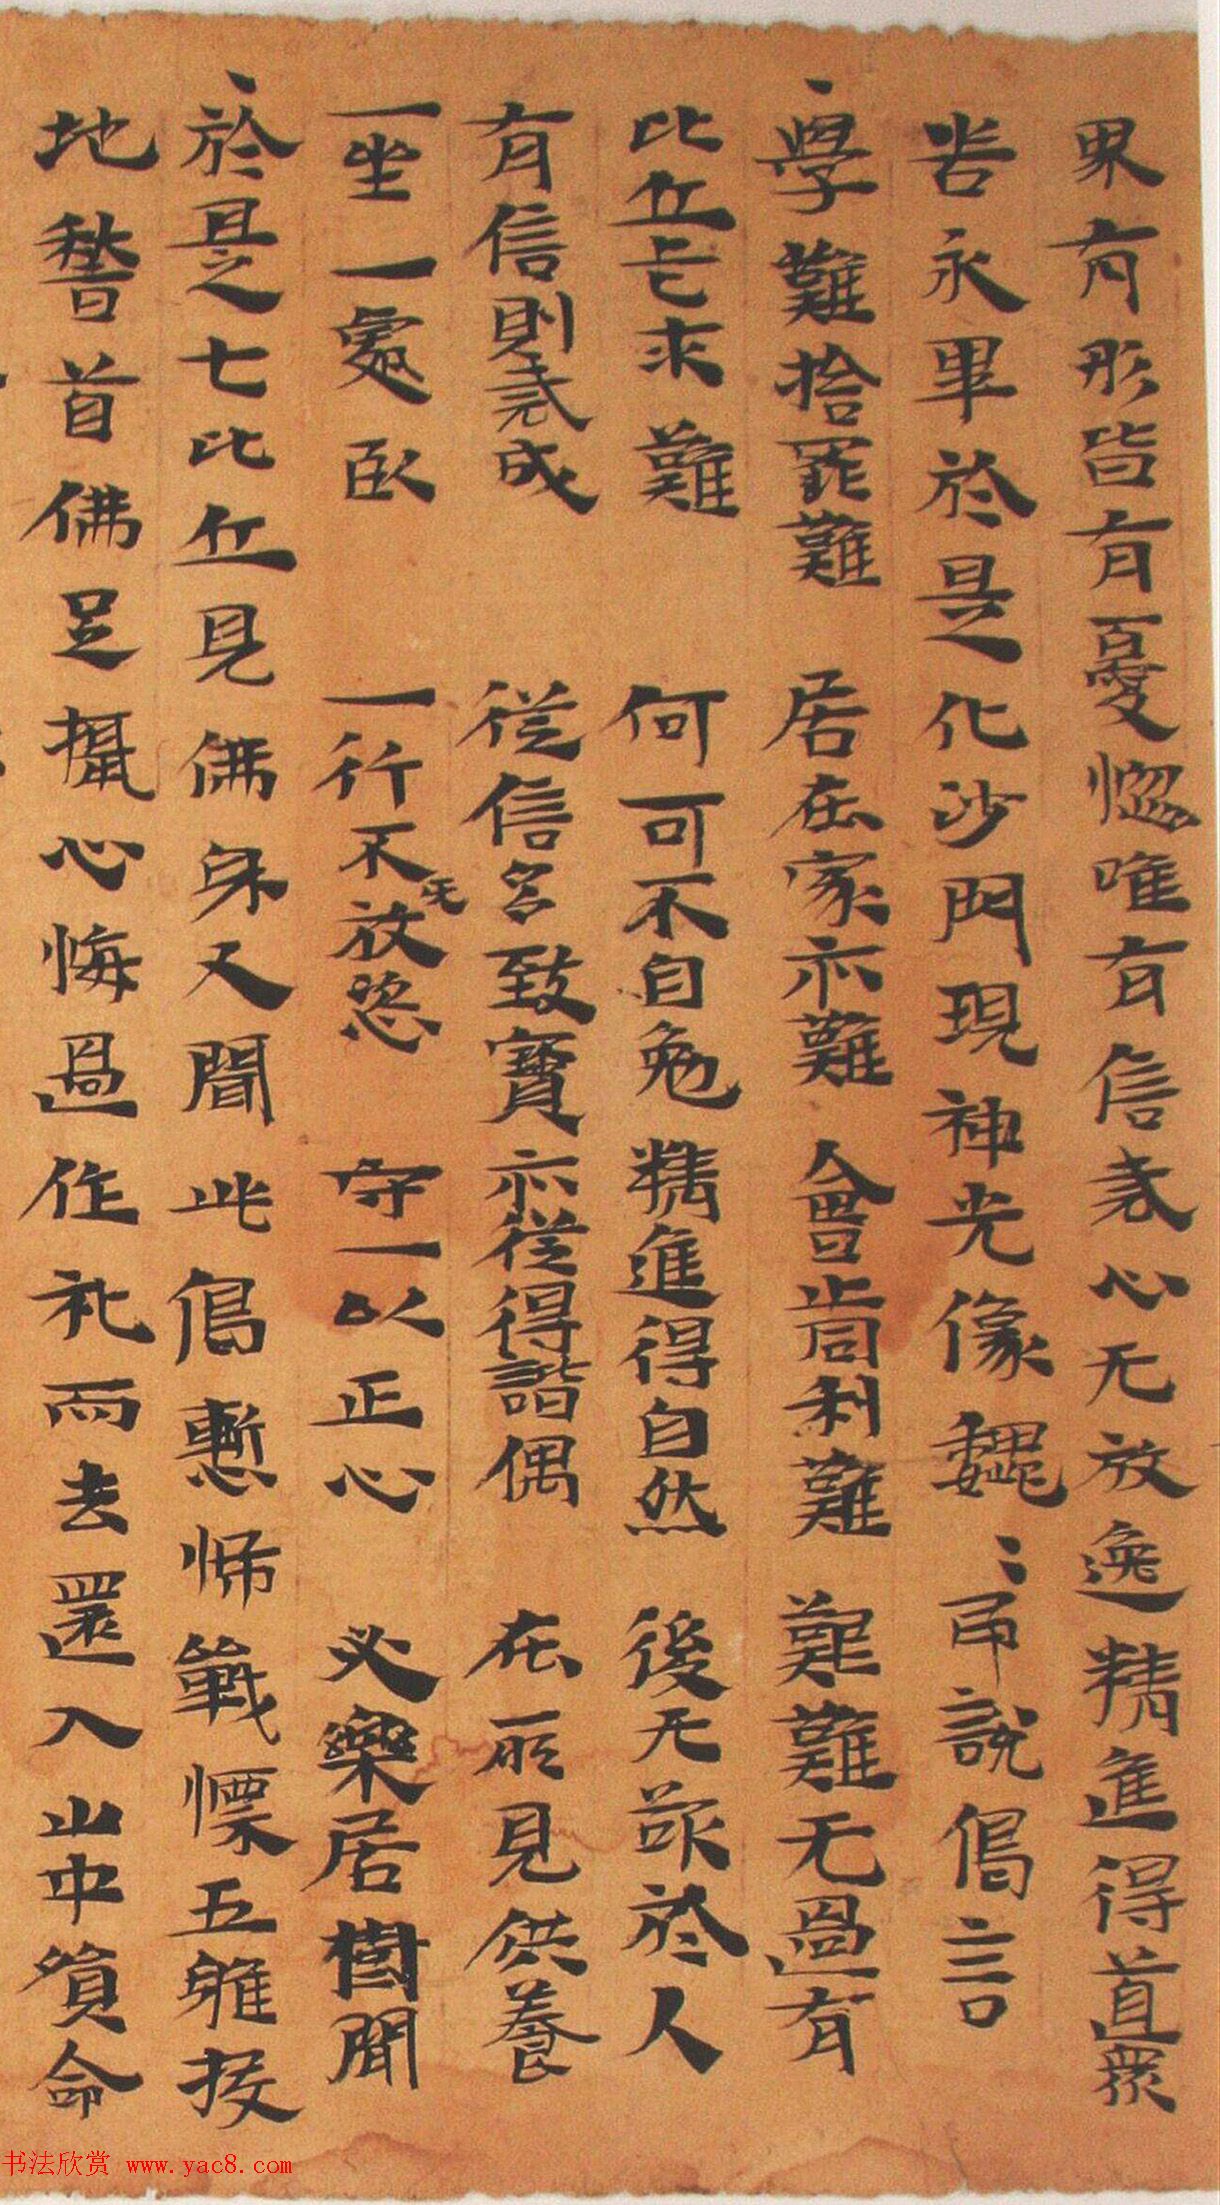 界有形皆有憂惱唯有信戒心无放逸精進得道眾
苦永畢於是化沙門現神光像魏〻說偈言
學難捨罪難　居在家亦難　會止同利難　難難无過有
比丘乞求難　何可不自勉　精進得自然　後无欲於人
有信則戒成　從信名致寶　亦從得諧偶　在所見供養
一坐一處臥　一行不无放恣　守一以正心　必樂居樹間
於是七比丘見佛身又聞此偈慙怖戰慄五投
地稽首佛足攝心悔過作礼而去還入山中命
书法欣赏 www.yac8.com